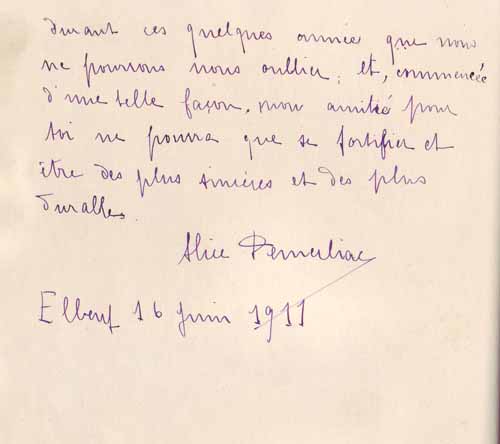 durant ces quelques année que nous
ne pourrons nous oublier, et, commencée
d'une telle façon, mon amitié pour
toi ne pourra que se fortifier et
être des plus sincères et des plus
durables.
Alice Demerliac
Elbeuf 16 juin 1911